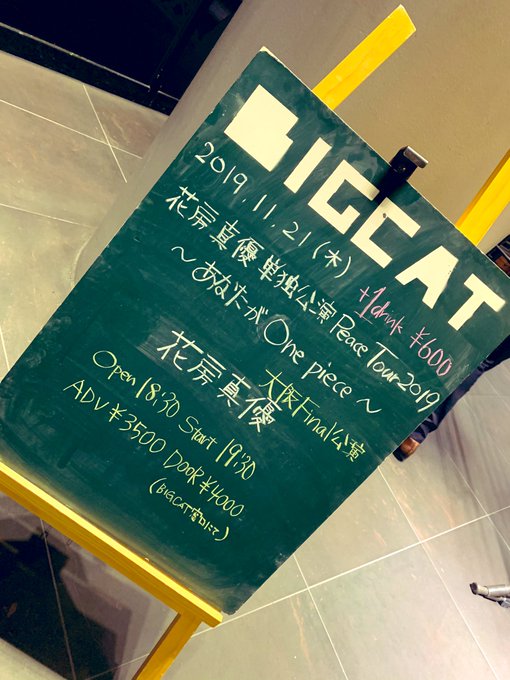 BIGCAT
2019.11.21(木)
+1drink ¥600
花房真優 単独公演 Peace Tour 2019
〜あなたが One piece〜
大阪Final公演
花房真優
Open 18:30 Start 19:30
ADV ¥3500 DOOR ¥4000
(BIGCAT窓口にて)